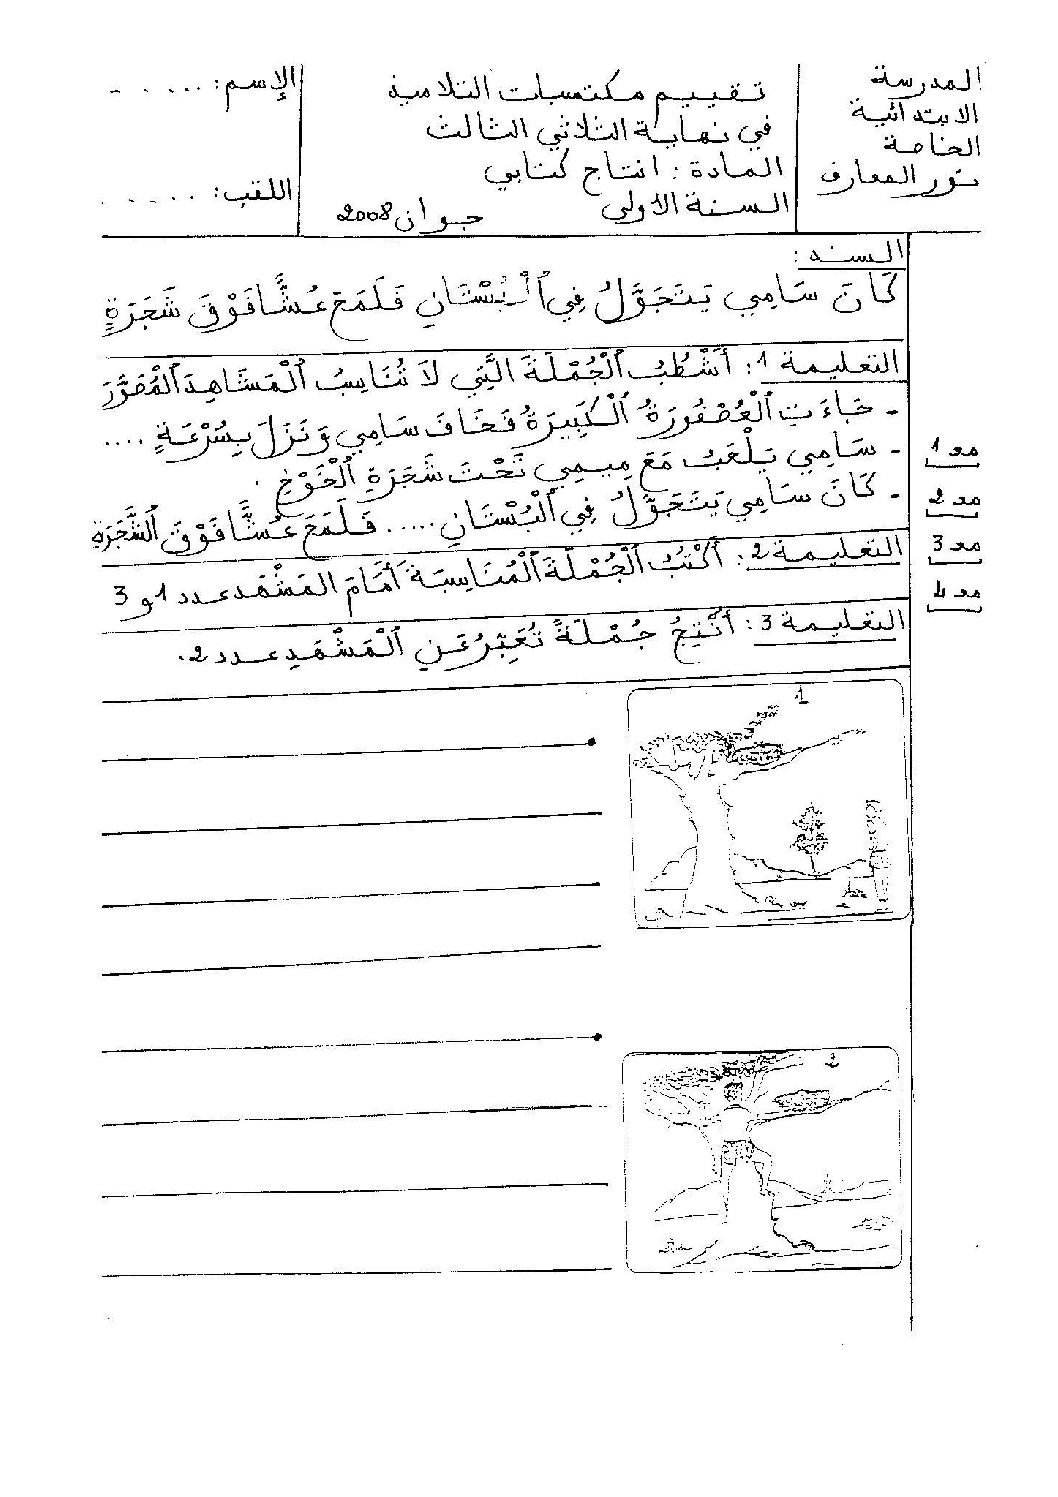 المدرسة
الابتدائية
الخاصة
نور المعارف
تقييم مكتسبات التلاميذ
في نهاية الثلاثي الثالث
المادة : انتاج كتابي
السنة الاولى جوان 2008
الإسم: .....
اللقب: ......
السند :
كَانَ سَامِي يَتَجَوَّلُ فِي ٱلْبُسْتَانِ فَلَمَحَ عُشًّا فَوْقَ شَجَرَةٍ
التعليمة 1: أَشْطُبُ ٱلْجُمْلَةَ الَّتِي لاَ تُنَاسِبُ ٱلْمَشَاهِدَ ٱلْمُصَوَّرَ
- جَاءَتِ ٱلْعُصْفُورَةُ ٱلْكَبِيرَةُ فَخَافَ سَامِي وَنَزَلَ بِسُرْعَةٍ ....
- سَامِي يَلْعَبُ مَعَ مِيمِي تَحْتَ شَجَرَةِ ٱلْخَوْخِ .
- كَانَ سَامِي يَتَجَوَّلُ فِي ٱلْبُسْتَانِ ..... فَلَمَحَ عُشًّا فَوْقَ ٱلشَّجَرَةِ
التعليمة 2: أَكْتُبُ ٱلْجُمْلَةَ ٱلْمُنَاسِبَةَ أَمَامَ المَشْهَدِ عدد 1 و 3
التعليمة 3: أُنْتِجُ جُمْلَةً تُعَبِّرُ عَنِ ٱلْمَشْهَدِ عدد 2.
مع 1
مع 2
مع 3
مع 4
1
2